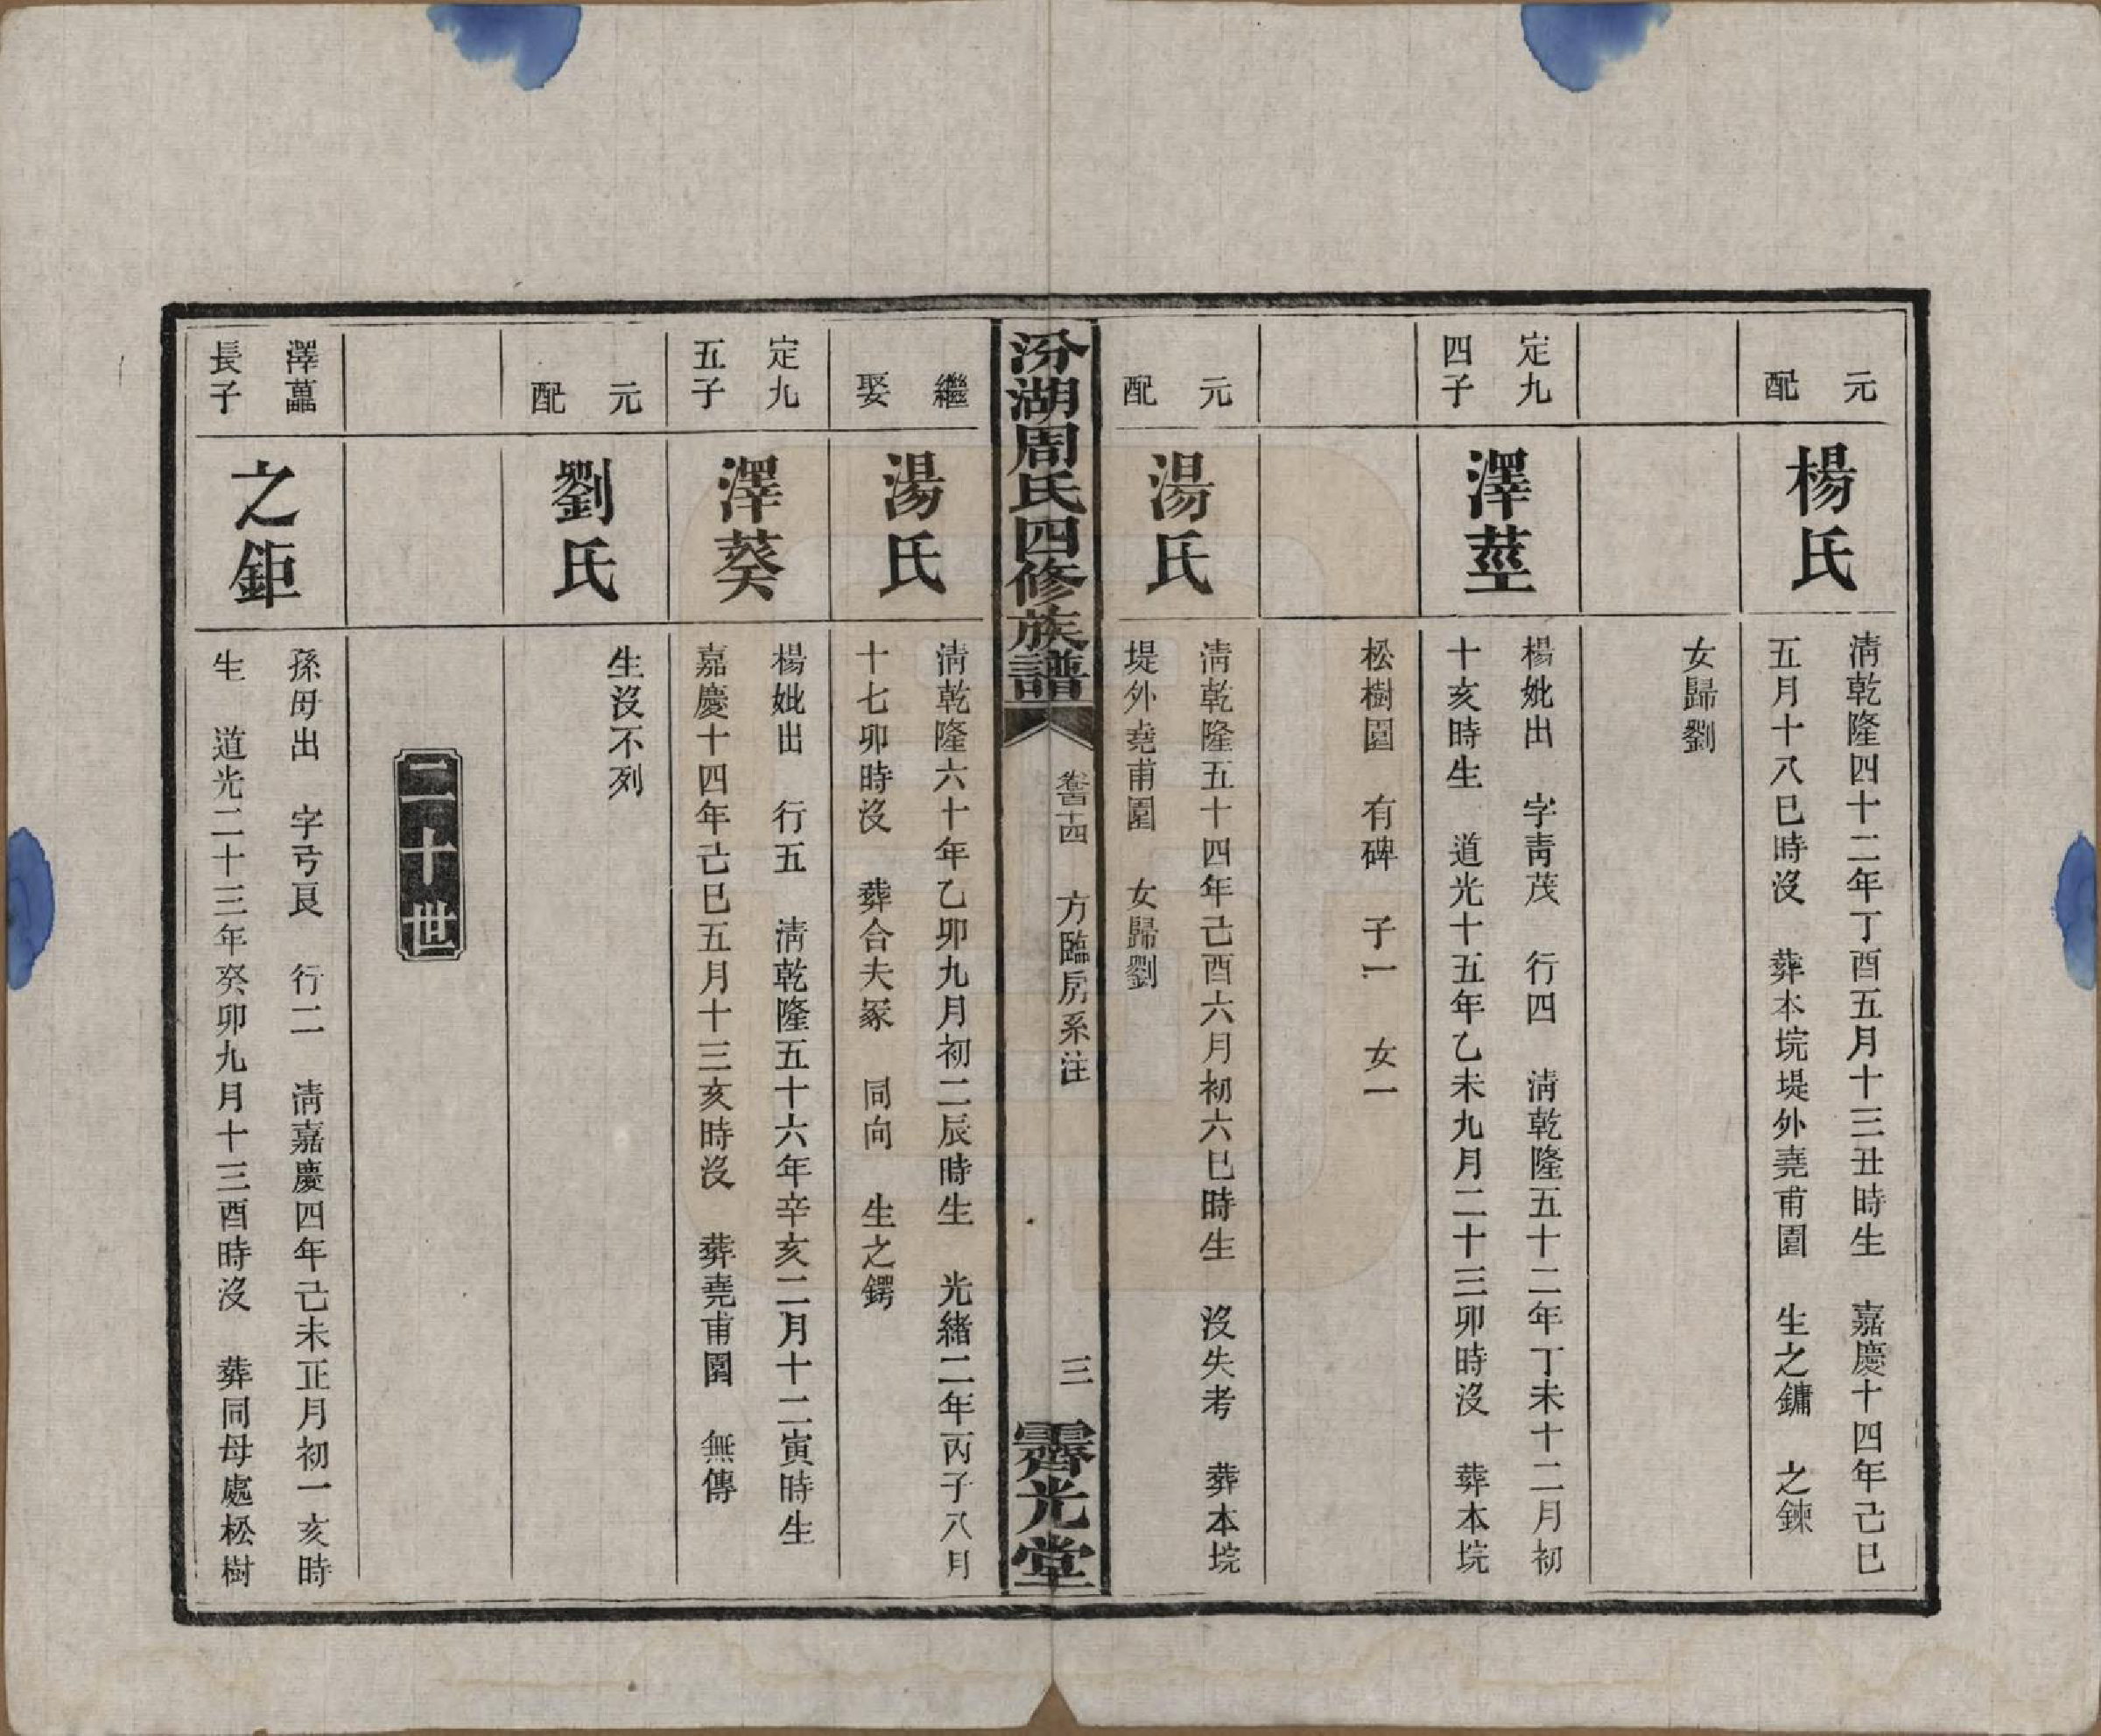 元
配
楊氏
清乾隆四十二年丁酉五月十三丑時生 嘉慶十四年己巳
五月十八巳時沒 葬本垸堤外堯甫園 生之鏞 之鍊
女歸劉
定九
四子
澤莖
楊妣出 字靑茂 行四 清乾隆五十二年丁未十二月初
十亥時生 道光十五年乙未九月二十三卯時沒 葬本垸
松樹園 有碑 子一 女一
元
配
湯氏
清乾隆五十四年己酉六月初六巳時生 沒失考 葬本垸
堤外堯甫園 女歸劉
汾湖周氏四修族譜
卷古十四 方臨房系注
三
霽光堂
繼
娶
湯氏
清乾隆六十年乙卯九月初二辰時生 光緒二年丙子八月
十七卯時沒 葬合夫冢 同向 生之鍔
定九
五子
澤葵
楊妣出 行五 清乾隆五十六年辛亥二月十二寅時生
嘉慶十四年己巳五月十三亥時沒 葬堯甫園 無傳
元
配
劉氏
生沒不列
二十世
澤藟
長子
之鉅
孫母出 字亏良 行二 清嘉慶四年己未正月初一亥時
生 道光二十三年癸卯九月十三酉時沒 葬同母處松樹